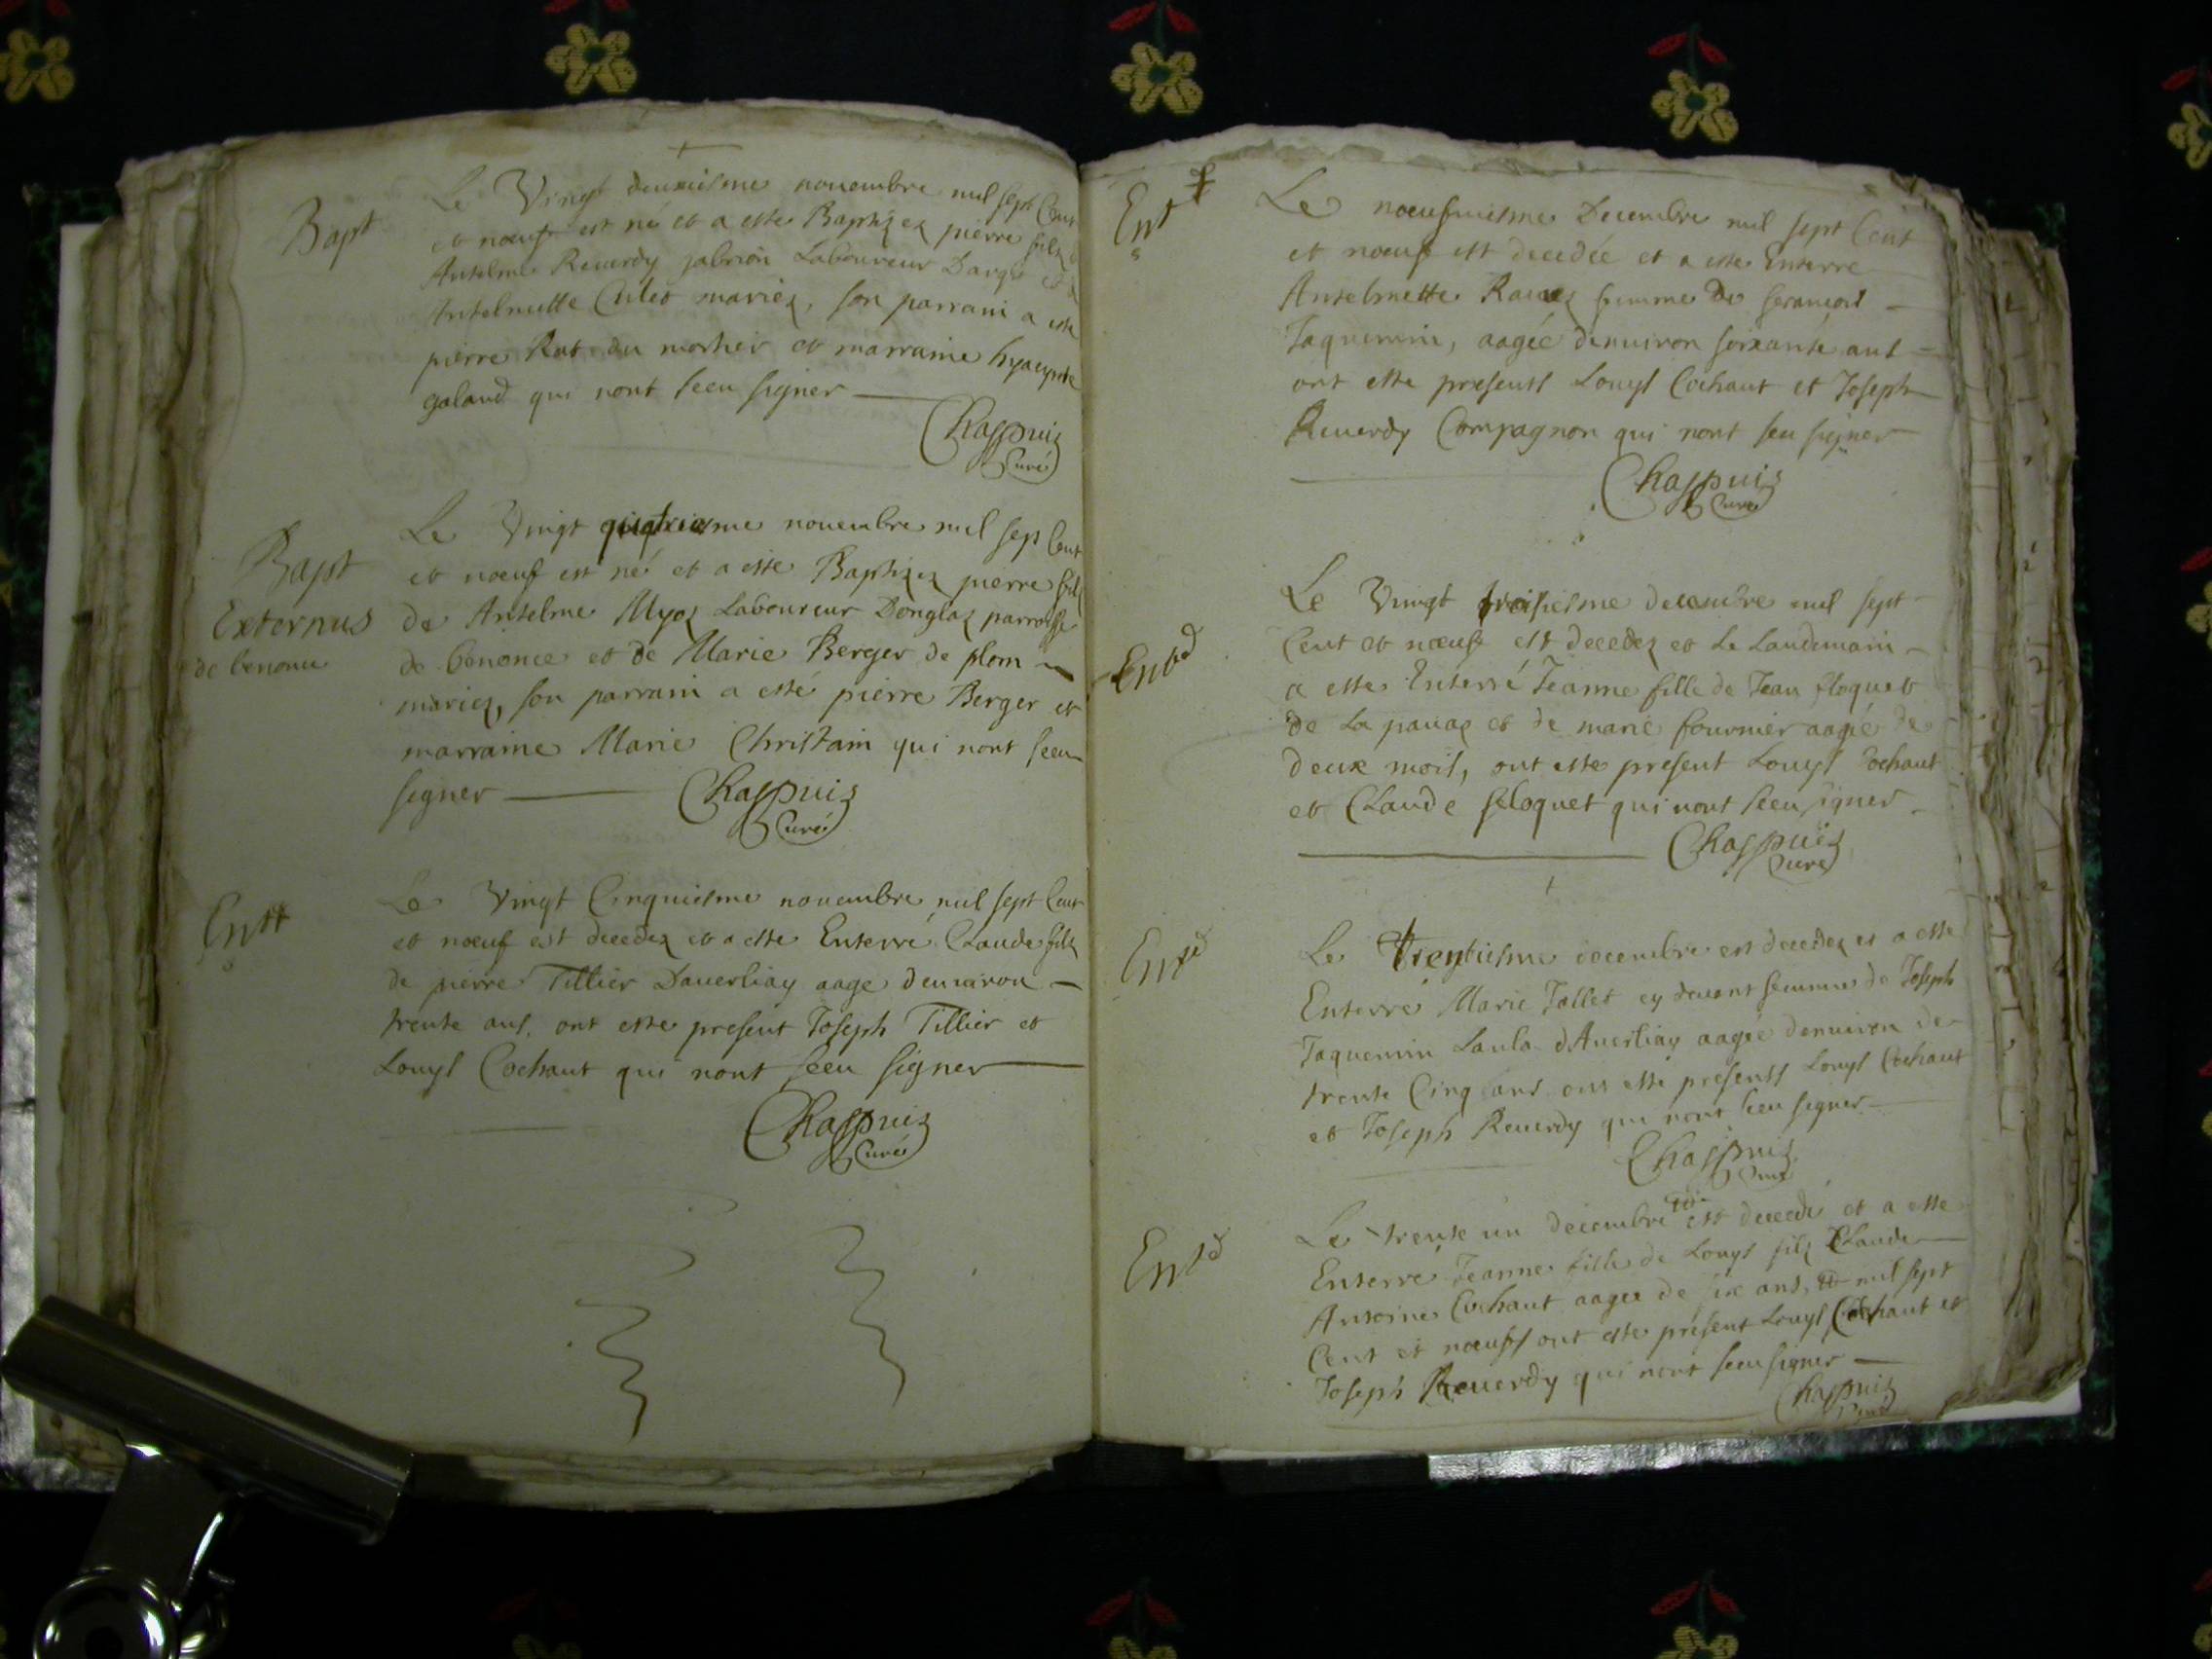 Bapt
Le Vingt deuxiesme nouembre mil sept Cent
et noeuf est né et a este Baptizez pierre filz
Anselme Reuerdy Laboureur
Anselmette mariez, son parrain a este
pierre Rat du mortier et marraine hyacynte
galand qui nont sceu signer
Chappuiz
Curé
Bapt
Externus
de benonce
Le Vingt quatriesme nouembre mil sept Cent
et noeuf est né et a este Baptizez pierre filz
de Anselme Myoz Laboureur Donglaz parroisse
de benonce et de Marie Berger de plom
mariez, son parrain a esté pierre Berger et
marraine Marie Christain qui nont sceu
signer
Chappuiz
Curé
Entt
Le Vingt Cinquiesme nouembre mil sept Cent
et noeuf est decedez et a este Enterré Claude filz
de pierre Tillier Dauerliaz aage denuiron
trente ans, ont este present Joseph Tillier et
Louys Cochaut qui nont sceu signer
Chappuiz
Curé
Ent
Le noeufuiesme Decembre mil sept Cent
et noeuf est decedée et a este Enterre
Anselmette femme de francois
Jaquemin, aagée denuiron soixante ans
ont este presents Louys Cochaut et Joseph
Reuerdy Compagnon qui nont sceu signer
Chappuiz
Curé
Entd
Le Vingt troisiesme decembre mil sept
Cent et noeuf est decedez et Le Landemain
a este Enterré Jeanne fille de Jean floquet
de La pauaz et de marie fournier aagée de
deux mois, ont este present Louys Cochaut
et Claude floquet qui nont sceu signer
Chappuiz
Curé
Entd
Le Trentiesme decembre est decedez et a este
Enterré Marie Tallet cy deuant femme de Joseph
Jaquemin Laula dAuerliaz aagée denuiron de
trente Cinq ans ont esté presents Louys Cochaut
et Joseph Reuerdy qui nont sceu signer
Chappuiz
Curé
Entd
Le trente un decembre est decedé et a este
Enterré Jeanne fille de Louys filz Claude
Antoine Cochaut aagee de six ans, mil sept
Cent et noeuf ont este present Louys Cochaut et
Joseph Reuerdy qui nont sceu signer
Chappuiz
Curé